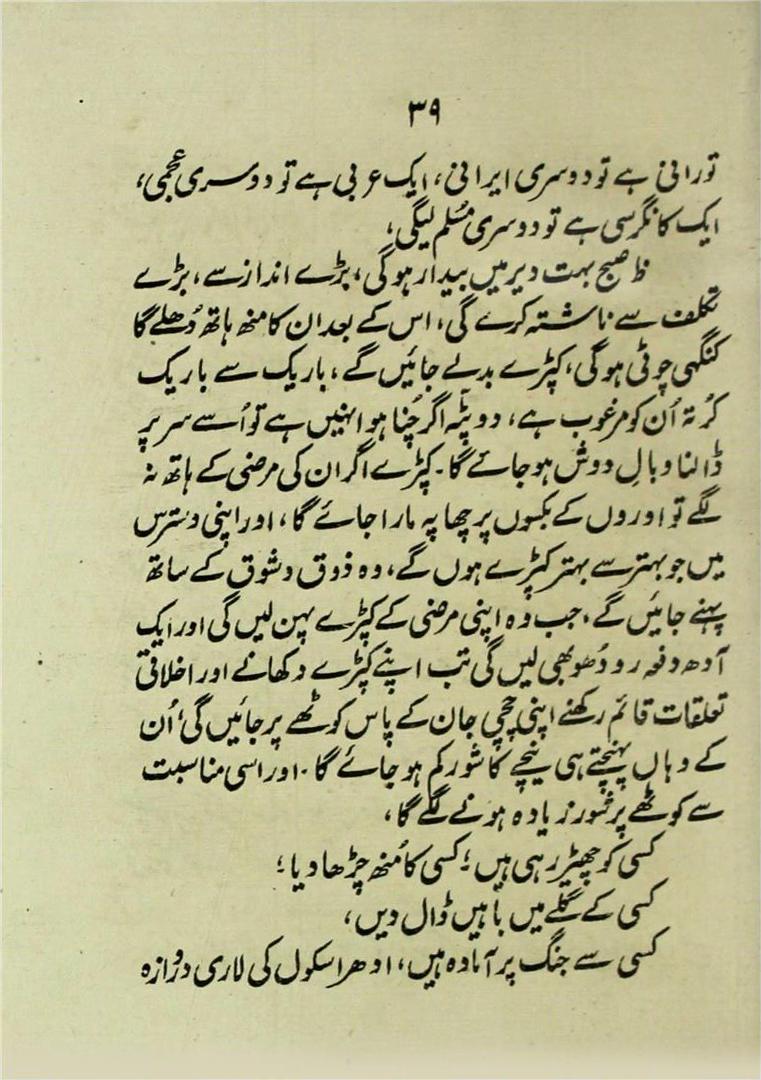 ۳۹
تورانی ہے تو دوسری ایرانی، ایک عربی ہے تو دوسری عجمی،
ایک کانگرسی ہے تو دوسری مُسلم لیگی،
صبح بہت دیر میں بیدار ہوگی، بڑے انداز سے، بڑے
تکلف سے ناشتہ کرے گی، اس کے بعد ان کا منھ ہاتھ دُھلے گا
کنگھی چوٹی ہوگی، کپڑے بدلے جائیں گے، باریک سے باریک
کُرتہ اُن کو مرغوب ہے، دوپٹہ اگر چُنا ہوا نہیں ہے تو اُسے سر پر
ڈالنا وبالِ دوش ہو جائے گا۔ کپڑے اگر ان کی مرضی کے ہاتھ نہ
لگے تو اوروں کے بکسوں پر چھاپہ مارا جائے گا، اور اپنی دسترس
میں جو بہتر سے بہتر کپڑے ہوں گے، وہ ذوق و شوق کے ساتھ
پہنے جائیں گے، جب وہ اپنی مرضی کے کپڑے پہن لیں گی اور ایک
آدھ دفعہ رو دُھو بھی لیں گی تب اپنے کپڑے دکھانے اور اخلاقی
تعلقات قائم رکھنے اپنی چچی جان کے پاس کوٹھے پر جائیں گی، اُن
کے وہاں پہنچتے ہی نیچے کا شور کم ہو جائے گا۔ اور اسی مناسبت
سے کوٹھے پر شور زیادہ ہونے لگے گا،
کسی کو چھیڑ رہی ہیں؛ کسی کا مُنھ چڑھا دیا؛
کسی کے گلے میں باہیں ڈال دیں،
کسی سے جنگ پر آمادہ ہیں، ادھر اسکول کی لاری دروازہ